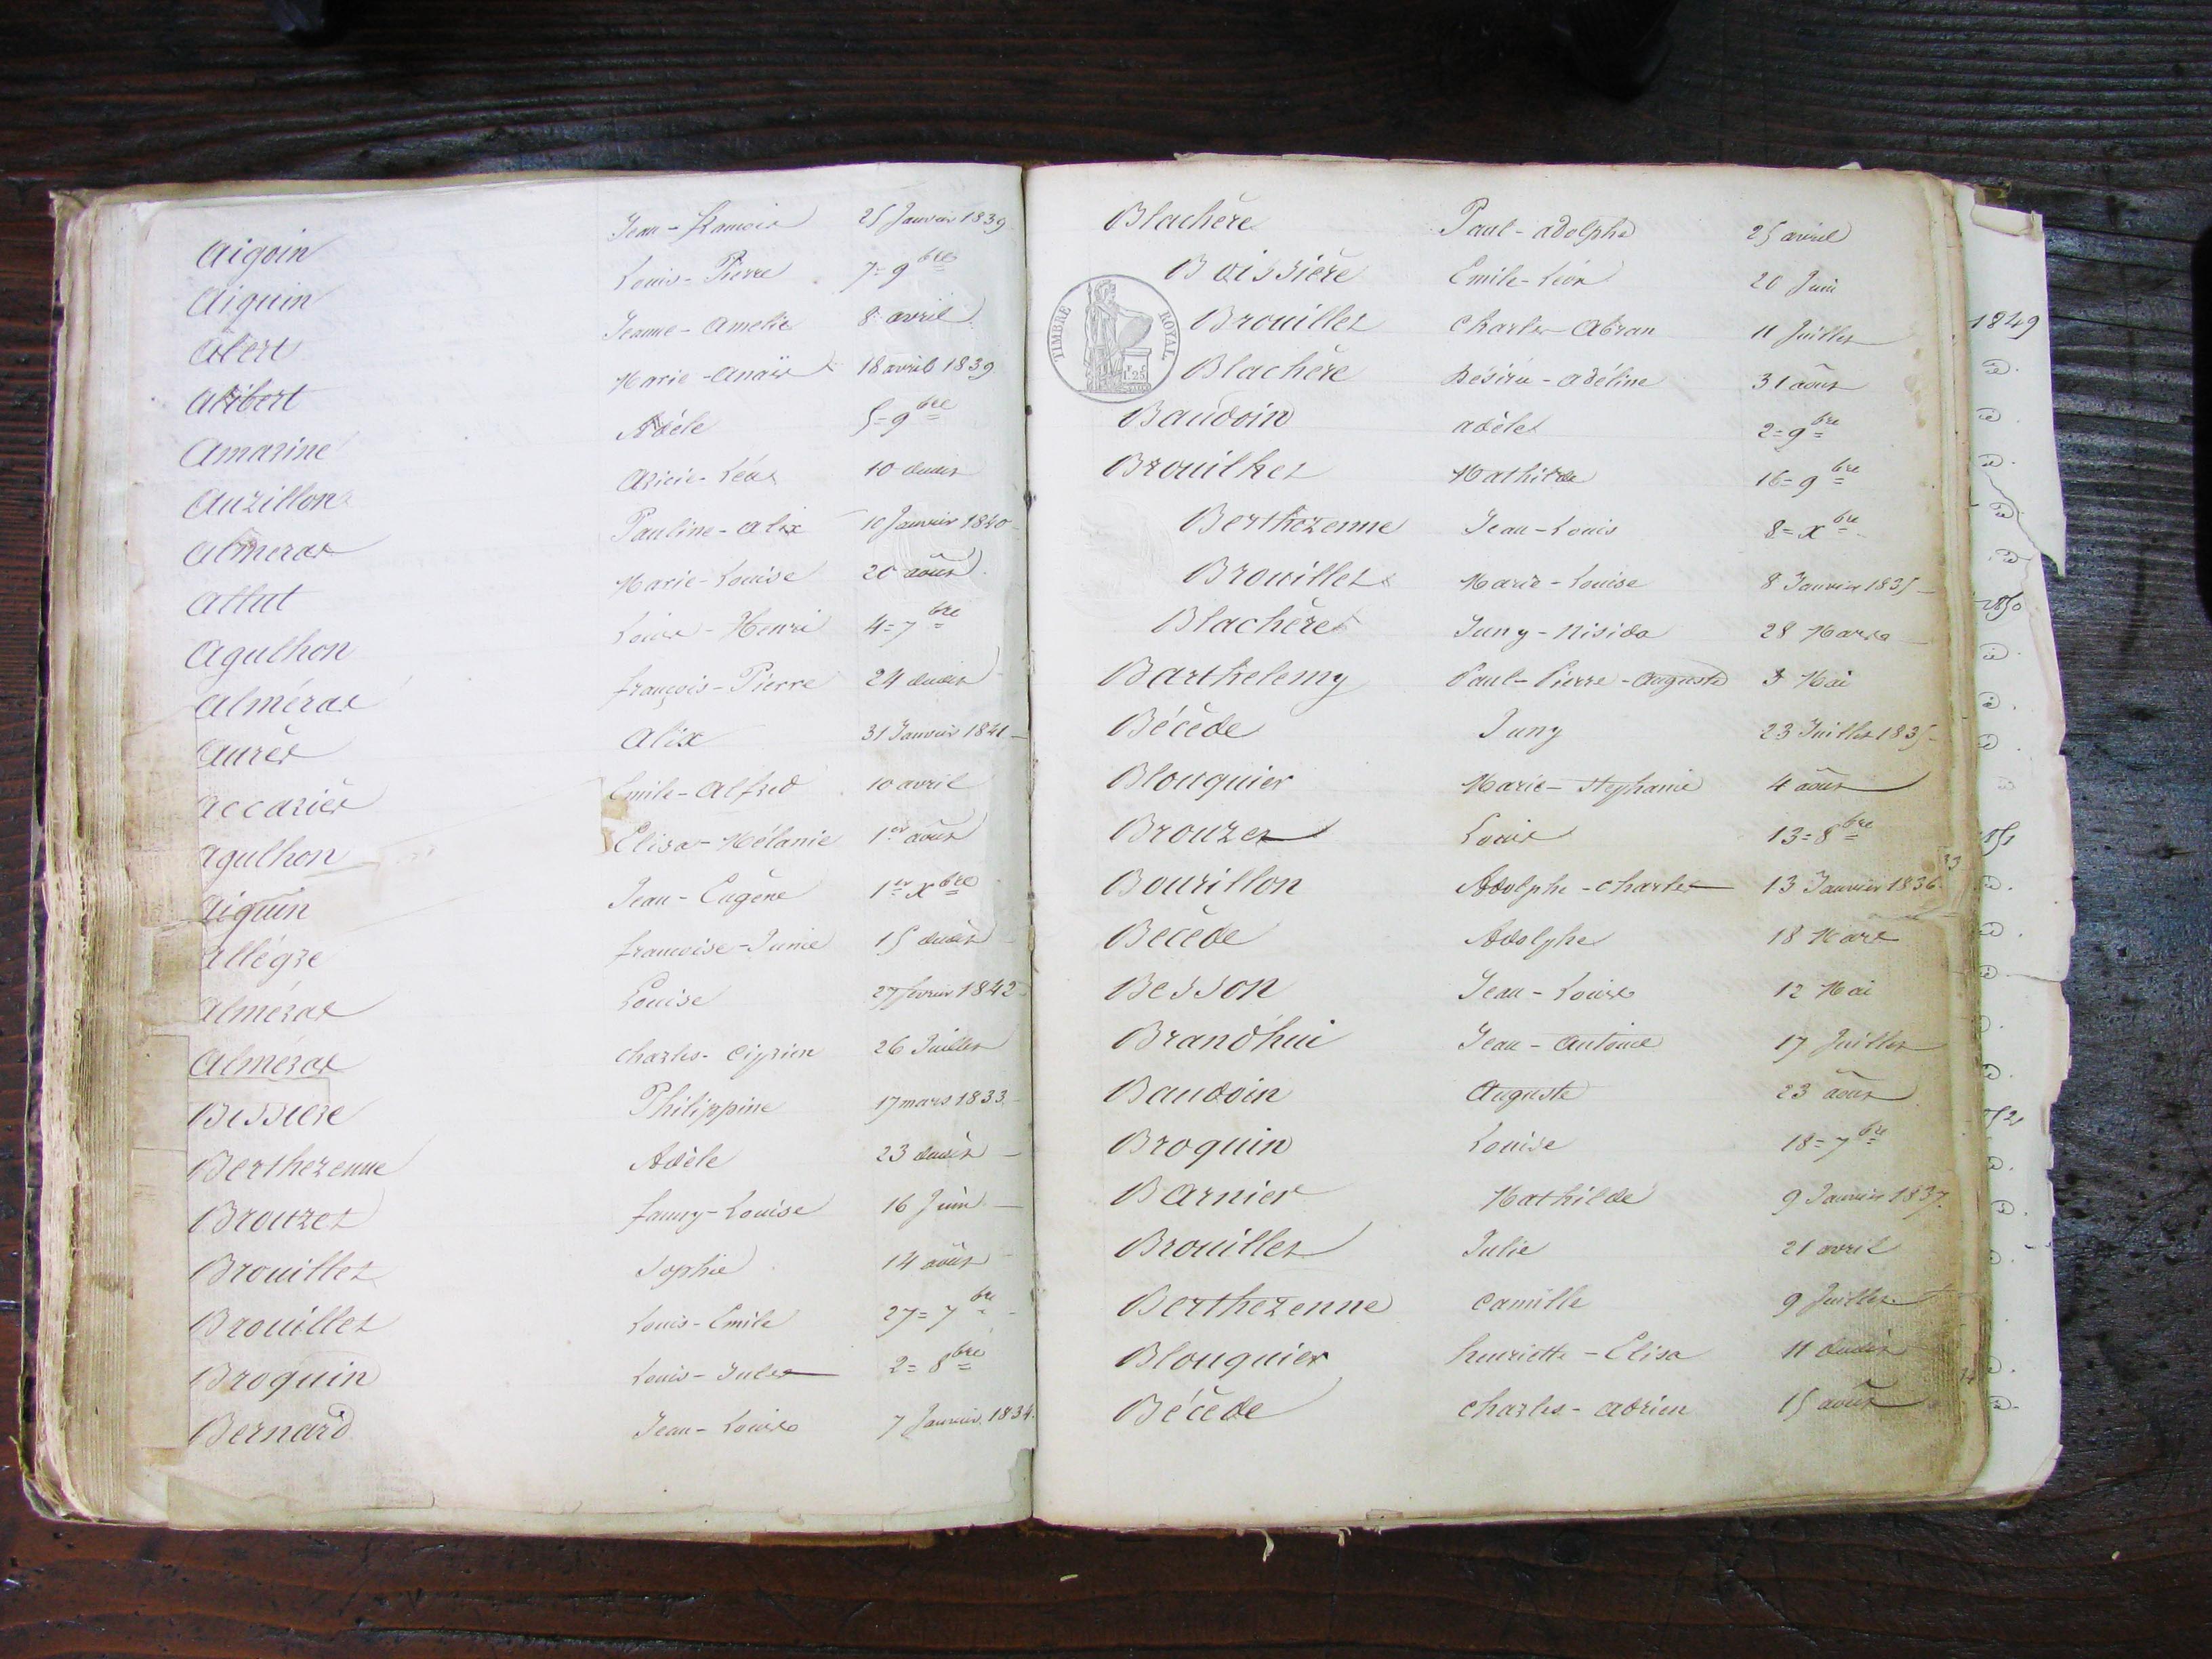 Aigoin Jean-Francois 25 Janvier 1839
Aiguin Louis-Pierre 7=9bre
Albert Jeanne-Amelie 8 avril
Alribert Marie-Anaïs 18 avril 1839
Amarine Adèle 5=9bre
Auzillon Azicie-Léa 10 dudit
Almeras Pauline-Alix 10 Janvier 1840
Allut Marie-Louise 20 août
Agulhon Louis-Henri 4=7bre
Alméras françois-Pierre 24 dudit
Aurès Alix 31 Janvier 1841
Accariès Emile-Alfred 10 avril
Agulhon Elisa-Mélanie 1er août
Aiguin Jean-Eugène 1er Xbre
Allégre francoise-Junie 15 dudit
Alméras Louise 27 fevrier 1842
Alméras Charles-Ciprien 26 Juillet
Bissiere Philippine 17 mars 1833
Berthezenne Adèle 23 dudit
Brouzet fanny-Louise 16 Juin
Brouillet Sophie 14 août
Brouillet Louis-Emile 27=7bre
Broquin Louis-Jules 2=8bre
Bernard Jean-Louis 7 Janvier 1834.
Blachère Paul-adolphe 25 avril
Boissière Emile-Léon 20 Juin
TIMBRE ROYAL
Brouillet Charles-Abran 11 Juillet
Blachère Désirée-adéline 31 août
Baudoin adèle 2=9bre
Brouilhet Mathilde 16=9bre
Berthezenne Jean-Louis 8=Xbre
Brouillet Marie-Louise 8 Janvier 1835
Blachère Juny-Nisida 28 Mars
Barthelemy Paul-Pierre-Auguste 3 Mai
Bécède Juny 23 Juillet 1835
Blouquier Marie-Stephanie 4 août
Brouzet Louis 13=8bre
Bourillon Adolphe-Charles 13 Janvier 1836
Bécède Adolphe 18 Mars
Besson Jean-Louis 12 Mai
Brandhui Jean-Antoine 17 Juillet
Baudoin Auguste 23 août
Broquin Louise 18=7bre
Barnier Mathilde 9 Janvier 1837.
Brouillet Julie 21 avril
Berthezenne Camille 9 Juillet
Blouquier henriette-Elisa 11 dudit
Bécède Charles-adrien 15 août
1849